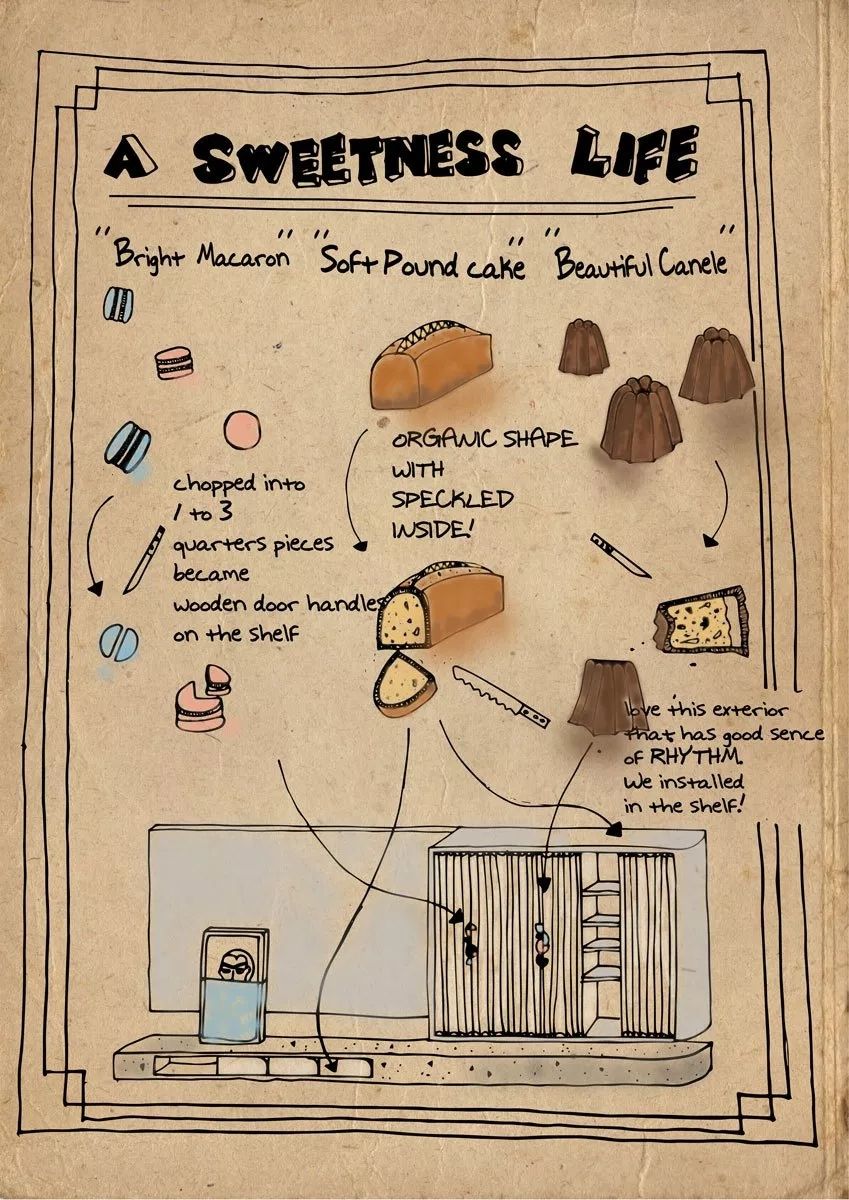 A SWEETNESS LIFE
"Bright Macaron" "Soft Pound cake" "Beautiful Canele"
ORGANIC SHAPE
WITH
SPECKLED
INSIDE!
chopped into
1 to 3
quarters pieces
became
wooden door handles
on the shelf
love this exterior
that has good sence
of RHYTHM.
We installed
in the shelf!